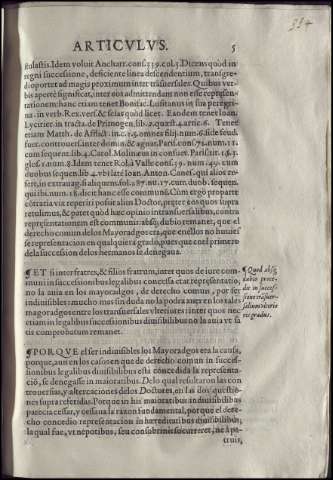 394
ARTICVLVS. 5
stulastis. Idem voluit Ancharr. cons. 339. col. 3. Dicens quòd in
regni successione, deficiente linea descendentium, transgre-
di oportet ad magis proximum inter trasuersales. Quibus ver-
bis apertè significat, inter eos admittendam non esse represen-
tationem: hanc etiam tenet Lusitanus in sua peregri-
na. in verb. Rex. vers. & scias quod licet. Eandem tenet Ioan.
in tracta. de Primogen. lib. 2. quæst. 4. artic. 6. Tenet
etiam Matth. de Afflict. in c. 1. §. omnes filij. num. 6. si de feud.
fuer. controuers. inter domin. & agnat. Paris cons. 72. num. 11.
cum sequent. lib. 4. Carol. Molineus in consuet.
num. 8. Idem tenet Rola à Valle cons. 39. num. 49. cum
duobus sequen. lib. 4. vbi latè Ioan. Anton. Canes. qui alios re-
fert, in extrauag. fol. 87. num. 17. cum duob. sequen.
qui ibi. num. 18. dicit hanc esse communẽ. Cùm ergò pro parte
cõtraria vix reperiri possit alius Doctor, præter eos quos supra
retulimus, & patet quòd hæc opinio intransuersalibus, contra
representationem est communis: absq; dubio remanet, que el
derecho comun delos Mayoradgos era, que enellos no huuiesse
representacion en qualquiera grado, pues que en el primero
dela succession delos hermanos se denegaua.
¶ ET si inter fratres, & filios fratrum, inter quos de iure com-
muni in successionibus legalibus concessa erat representatio,
no la auia en los mayoradgos, de derecho comun, por ser
indiuisibles: mucho mas sin duda no la podra auer en los tales
mayoradgos entre los transuersales vlteriores: inter quos nec
etiam in legalibus successionibus diuisibilibus no la auia vt su
pra comprobatum remanet.
¶ Quod absq;
dubio proce-
dit in succes-
sione trãsuer-
salium vlterio
ris gradus.
¶ PORQVE el ser indiuisibles los Mayoradgos era la causa,
porque, aun en los casos en que de derecho comun in succes-
sionibus legalibus diuisibilibus està concedida la representa-
ciò, se denegasse in maioratibus. Delo qual resultaron las con
trouersias, y altercaciones delos Doctores, en las dos questio-
nes supra referidas. Porque in his maioratibus indiuisibilibus
parecia cessar, y cessaua la razon fundamental, porque el dere-
cho concedio representacion in hæreditatibus diuisibilibus;
la qual fue, vt nepotibus, seu consobrinis succurreret, ne à pa-
truis,